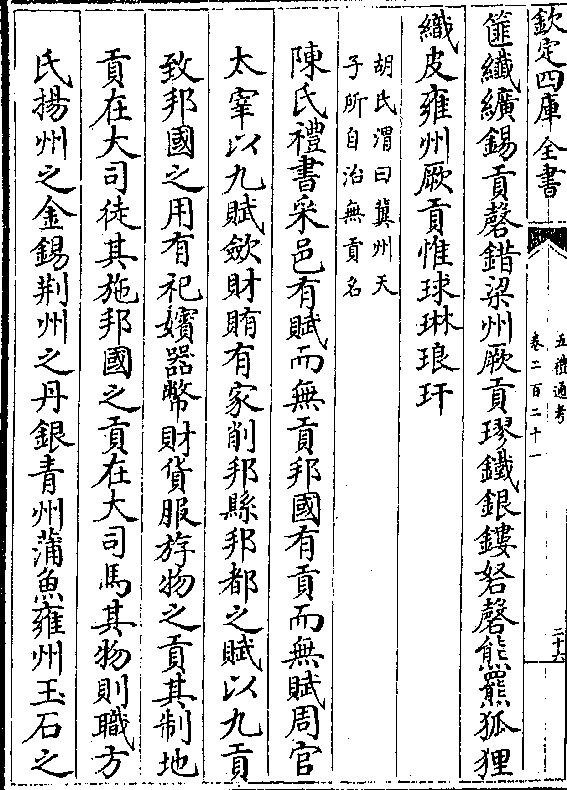 欽定四庫全書
五禮通考
卷二百二十一
三十六
篚纖纊錫貢磬錯梁州厥貢璆鐵銀鏤砮磬熊羆狐狸
織皮雍州厥貢惟球琳琅玕
胡氏渭曰冀州天
子所自治無貢名
陳氏禮書采邑有賦而無貢邦國有貢而無賦周官
太宰以九賦斂財賄有家削邦縣邦都之賦以九貢
致邦國之用有祀嬪器幣財貨服斿物之貢其制地
貢在大司徒其施邦國之貢在大司馬其物則職方
氏揚州之金錫荆州之丹銀青州蒲魚雍州玉石之